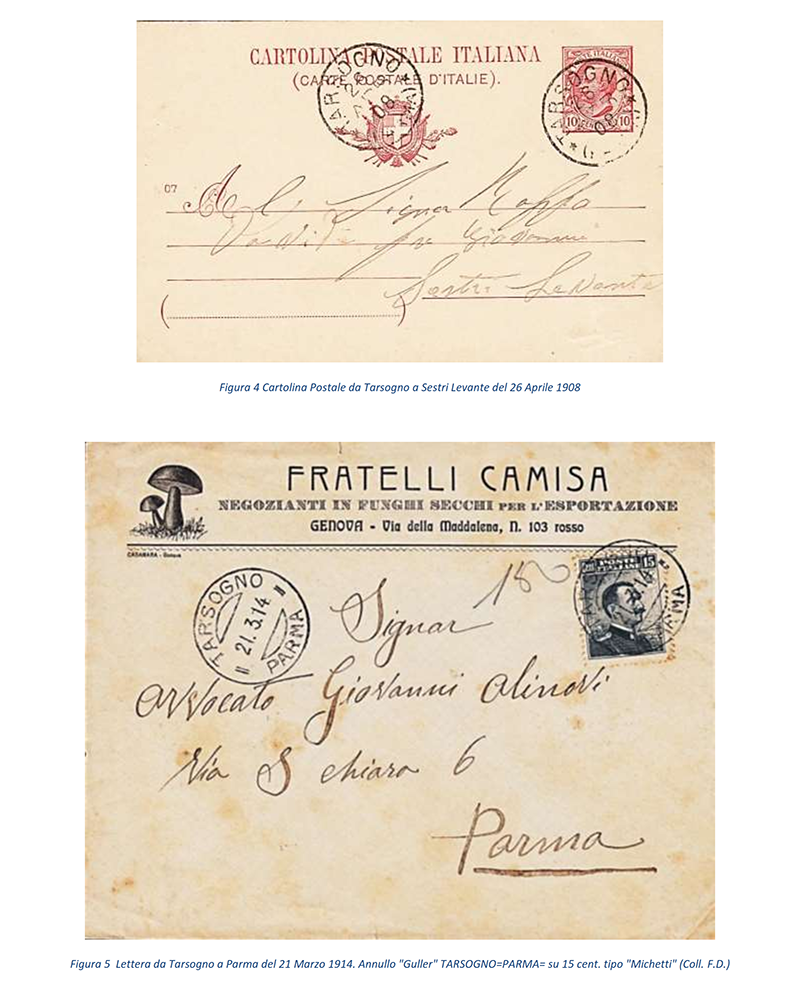 CARTOLINA POSTALE ITALIANA
(CARTE POSTALE D'ITALIE).
TARSOGNO
26
08
TARSOGNO
08
10 10
07
Al Signor
fu Giovanni
Sestri Levante
Figura 4 Cartolina Postale da Tarsogno a Sestri Levante del 26 Aprile 1908
FRATELLI CAMISA
NEGOZIANTI IN FUNGHI SECCHI PER L'ESPORTAZIONE
GENOVA - Via della Maddalena, N. 103 rosso
CASAMARA - Genova
POSTE
15
TARSOGNO
= 21.3.14 =
PARMA
180
Signor
Avvocato Giovanni Alinovi
Via S chiara 6
Parma
Figura 5 Lettera da Tarsogno a Parma del 21 Marzo 1914. Annullo "Guller" TARSOGNO=PARMA= su 15 cent. tipo "Michetti" (Coll. F.D.)